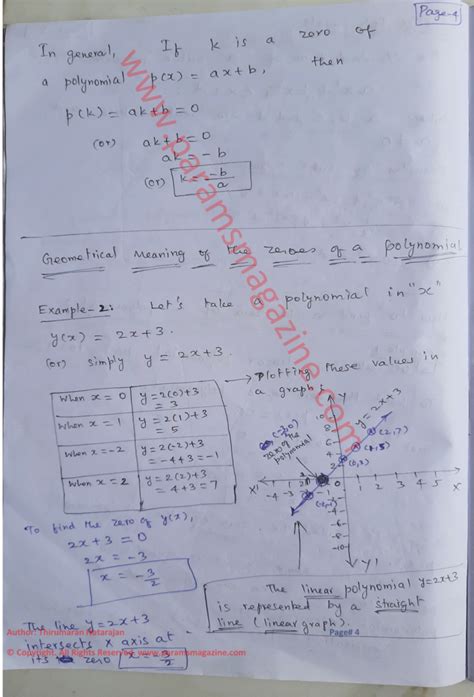 Page-4
In general, If k is a zero of
a polynomial p(x) = ax+b, then
p(k) = ak+b = 0
(or) ak+b = 0
ak = -b
(or) k = -b/a
Geometrical Meaning of the zeroes of a polynomial
Example-2: Let's take a polynomial in "x"
y(x) = 2x+3.
(or) simply y = 2x+3.
When x = 0 y = 2(0)+3
= 3
When x = 1 y = 2(1)+3
5
When x = -2 y = 2(-2)+3
= -4+3 = -1
When x = 2 y = 2(2)+3
= 4+3 = 7
Plotting these values in
a graph:
Y
y = 2x+3
(2,7)
(1,5)
(0,3)
zero of the
polynomial
X' -4 -3 0 1 2 3 4 5 X
-10
Y1
To find the zero of y(x),
2x+3 = 0
2x = -3
x = -3/2
The line y = 2x+3
intersects x axis at
its zero x = -3/2
The linear polynomial y=2x+3
is represented by a straight
line (linear graph).
www.paramsmagazine.com
Author: Thirumaran Natarajan
Page# 4
© Copyright. All Rights Reserved. www.paramsmagazine.com